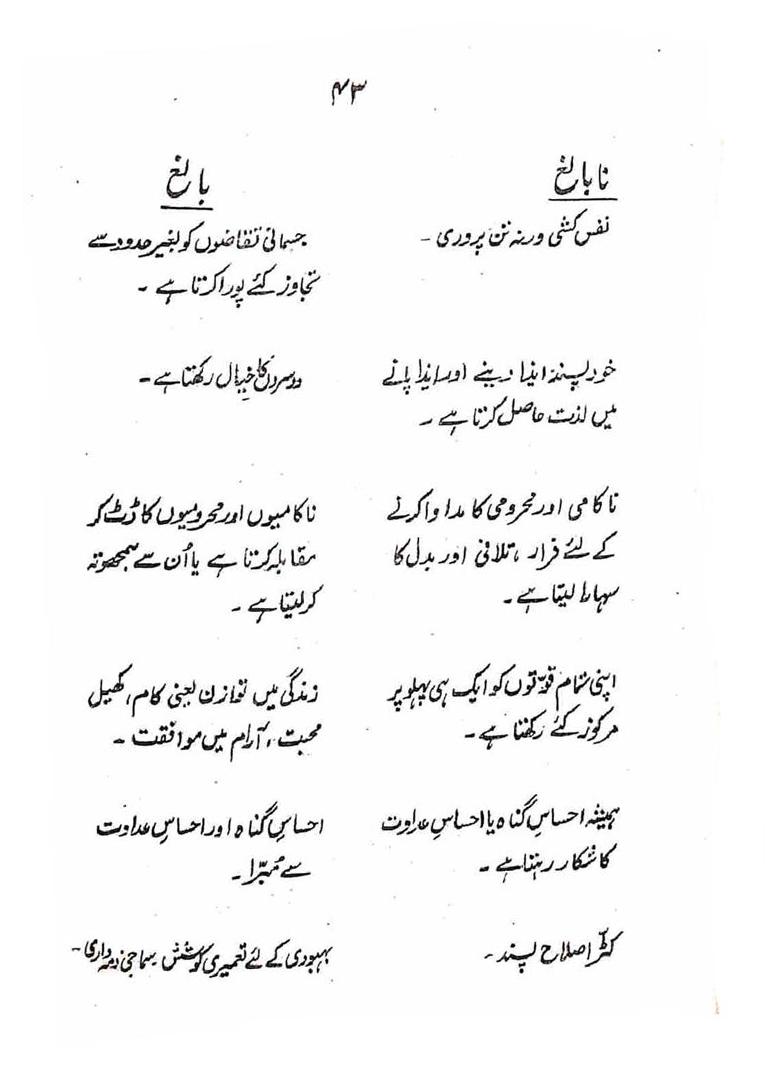 ۴۳
نابالغ
بالغ
نفس کشی ورنہ تن پروری ۔
جسمانی تقاضوں کو بغیر حدود سے
تجاوز کئے پورا کرتا ہے ۔
خود پسند ایذا دینے اور ایذا پانے
میں لذت حاصل کرتا ہے ۔
دوسروں کا خیال رکھتا ہے ۔
ناکامی اور محرومی کا مداوا کرنے
کے لئے فرار ، تلافی اور بدل کا
سہارا لیتا ہے ۔
ناکامیوں اور محرومیوں کا ڈٹ کر
مقابلہ کرتا ہے یا اُن سے سمجھوتہ
کر لیتا ہے ۔
اپنی تمام قوّتوں کو ایک ہی پہلو پر
مرکوز کئے رکھتا ہے ۔
زندگی میں توازن یعنی کام ، کھیل
محبت ، آرام میں موافقت ۔
ہمیشہ احساسِ گناہ یا احساسِ عداوت
کا شکار رہتا ہے ۔
احساسِ گناہ اور احساسِ عداوت
سے مُبّرا ۔
کٹّر اصلاح پسند ۔
بہبودی کے لئے تعمیری کوشش سماجی ذمہ داری ۔